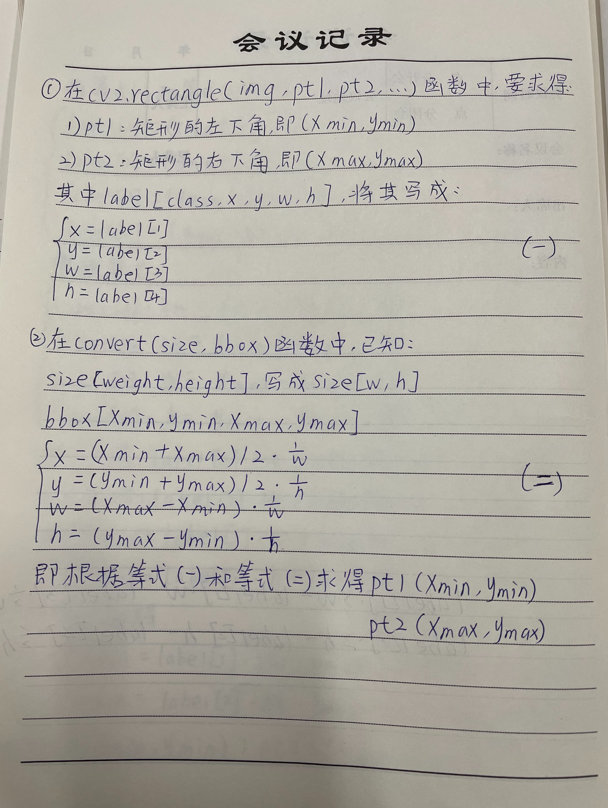 会议记录
①在cv2.rectangle(img,pt1,pt2,...)函数中,要求得:
1)pt1:矩形的左下角,即(Xmin,ymin)
2)pt2:矩形的右下角,即(Xmax,ymax)
其中label[class,x,y,w,h],将其写成:
x=label[1]
y=label[2]
(一)
w=label[3]
h=label[4]
②在convert(size,bbox)函数中,已知:
size[weight,height],写成size[w,h]
bbox[Xmin,ymin,Xmax,ymax]
x=(Xmin+Xmax)/2·1/w
y=(ymin+ymax)/2·1/h
(二)
w=(Xmax-Xmin)·1/w
h=(ymax-ymin)·1/h
即根据等式(一)和等式(二)求得pt1(Xmin,ymin)
pt2(Xmax,ymax)